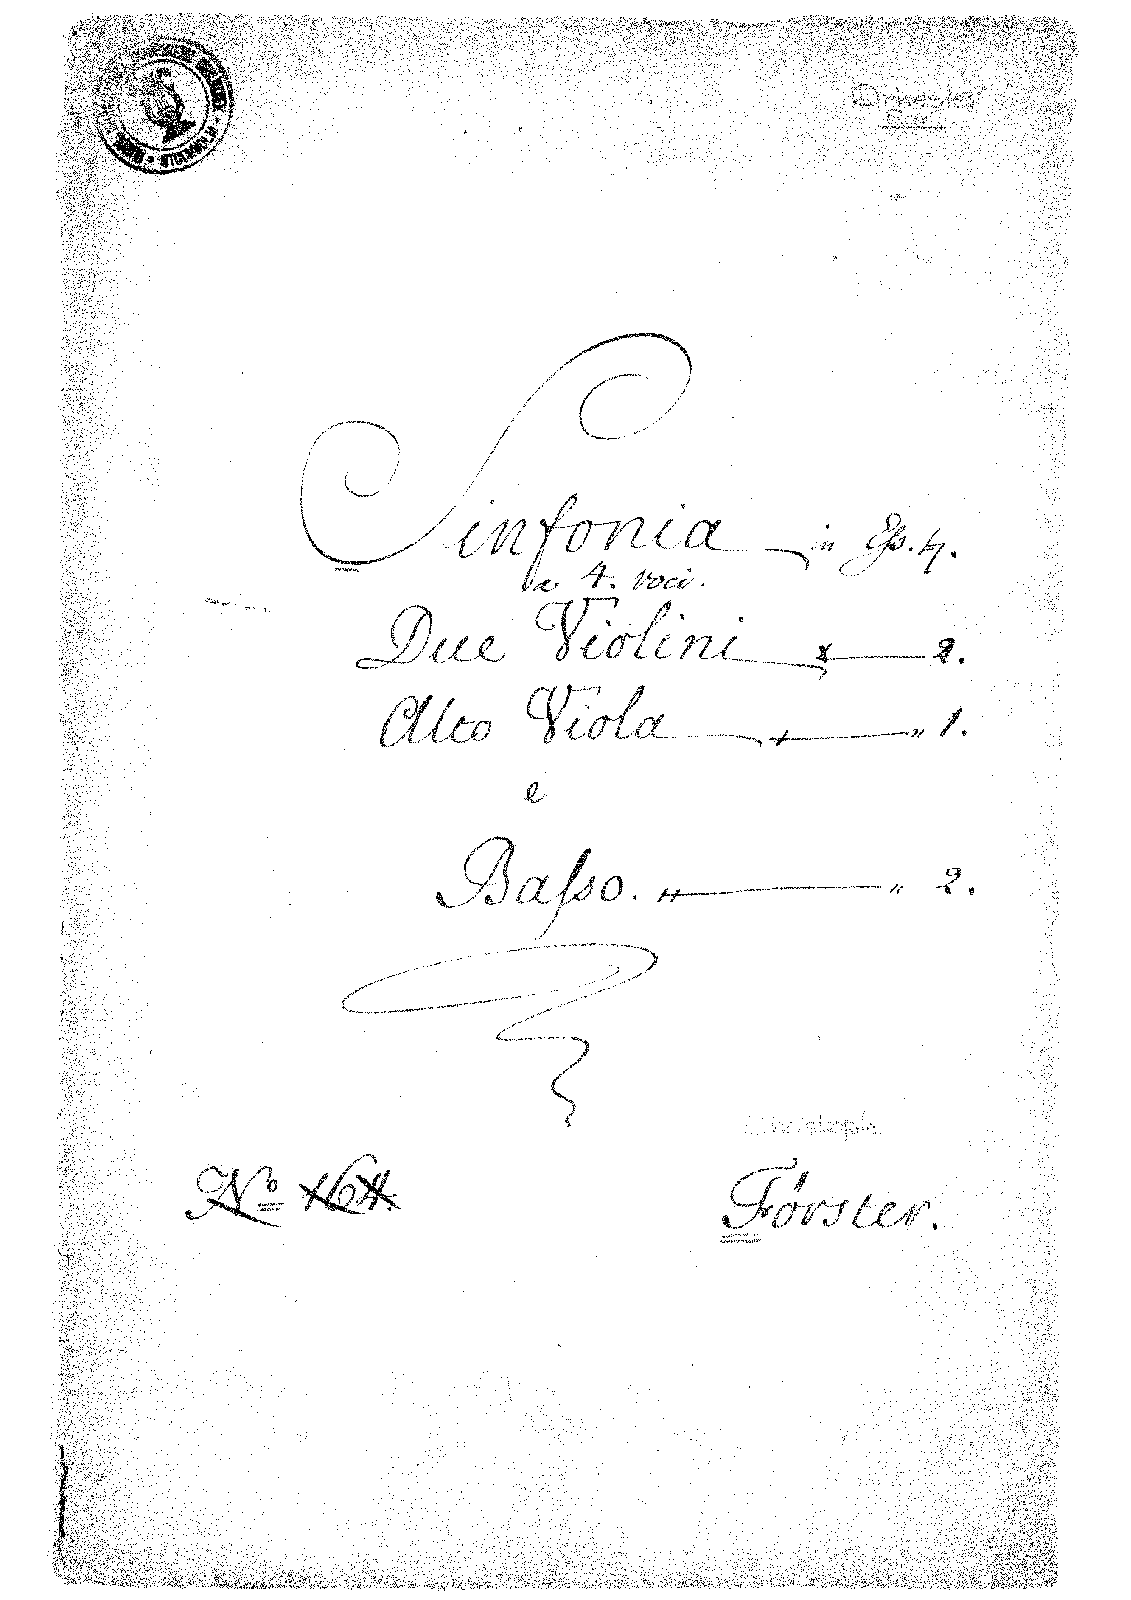 Sinfonia in
a 4. voci.
Due Violini 2.
Alto Viola " 1.
e
Basso. " 2.
Christoph
No 164.
Förster.